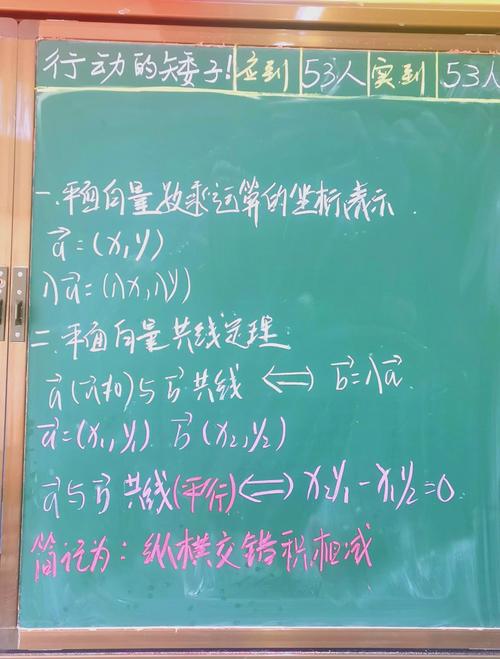 行动的矮子! 应到 53人 实到 53人
一.平面向量数乘运算的坐标表示.
a⃗=(x,y)
λa⃗=(λx,λy)
二.平面向量共线定理.
a⃗(a⃗≠0)与b⃗共线 ⟺ b⃗=λa⃗.
a⃗=(x₁,y₁) b⃗(x₂,y₂)
a⃗与b⃗共线(平行)⟺x₂y₁-x₁y₂=0.
简记为:纵横交错积相减